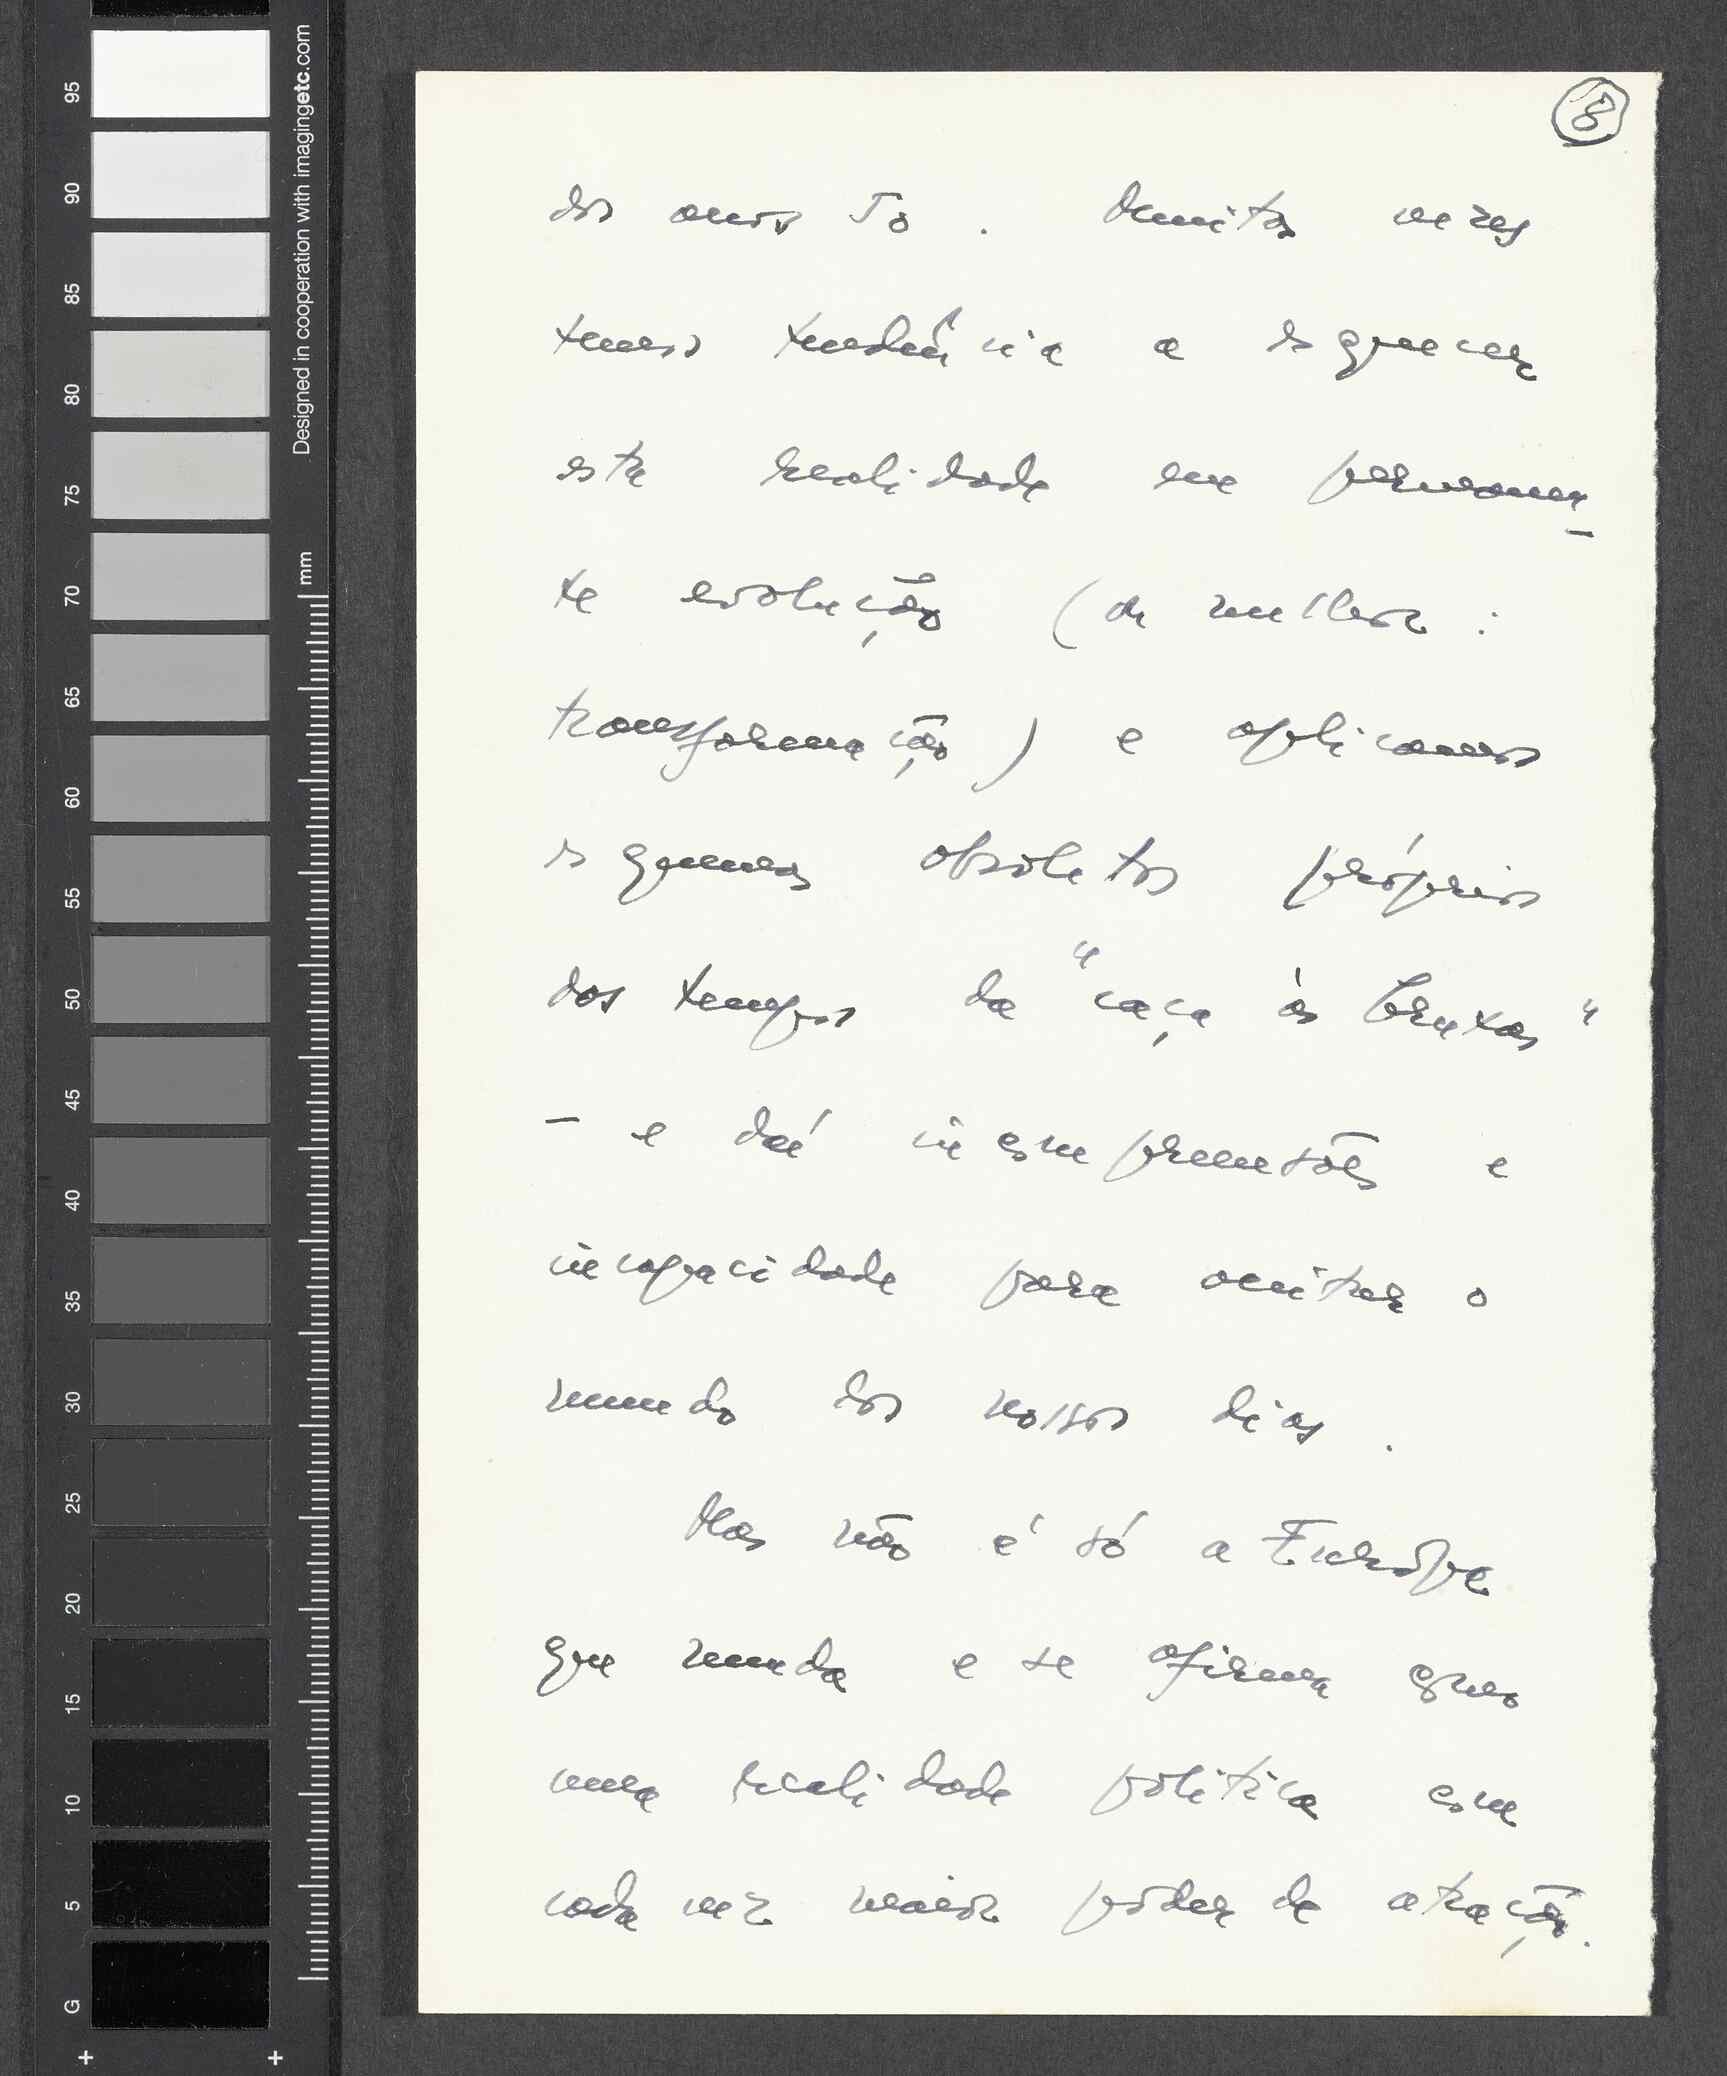 8
dos anos 50. Muitas vezes
temos tendência a esquecer
esta realidade em permanen-
te evolução (ou melhor:
transformação) e aplicamos
esquemas obsoletos próprios
dos tempos da "caça às bruxas"
- e daí incompreensões e
incapacidade para aceitar o
mundo dos nossos dias.
Mas não é só a Europa
que muda e se afirma como
uma realidade política com
cada vez maior poder de atração.
95
90
85
80
75
70
65
60
55
50
45
40
35
30
25
20
15
10
5
G
Designed in cooperation with imagingetc.com
mm